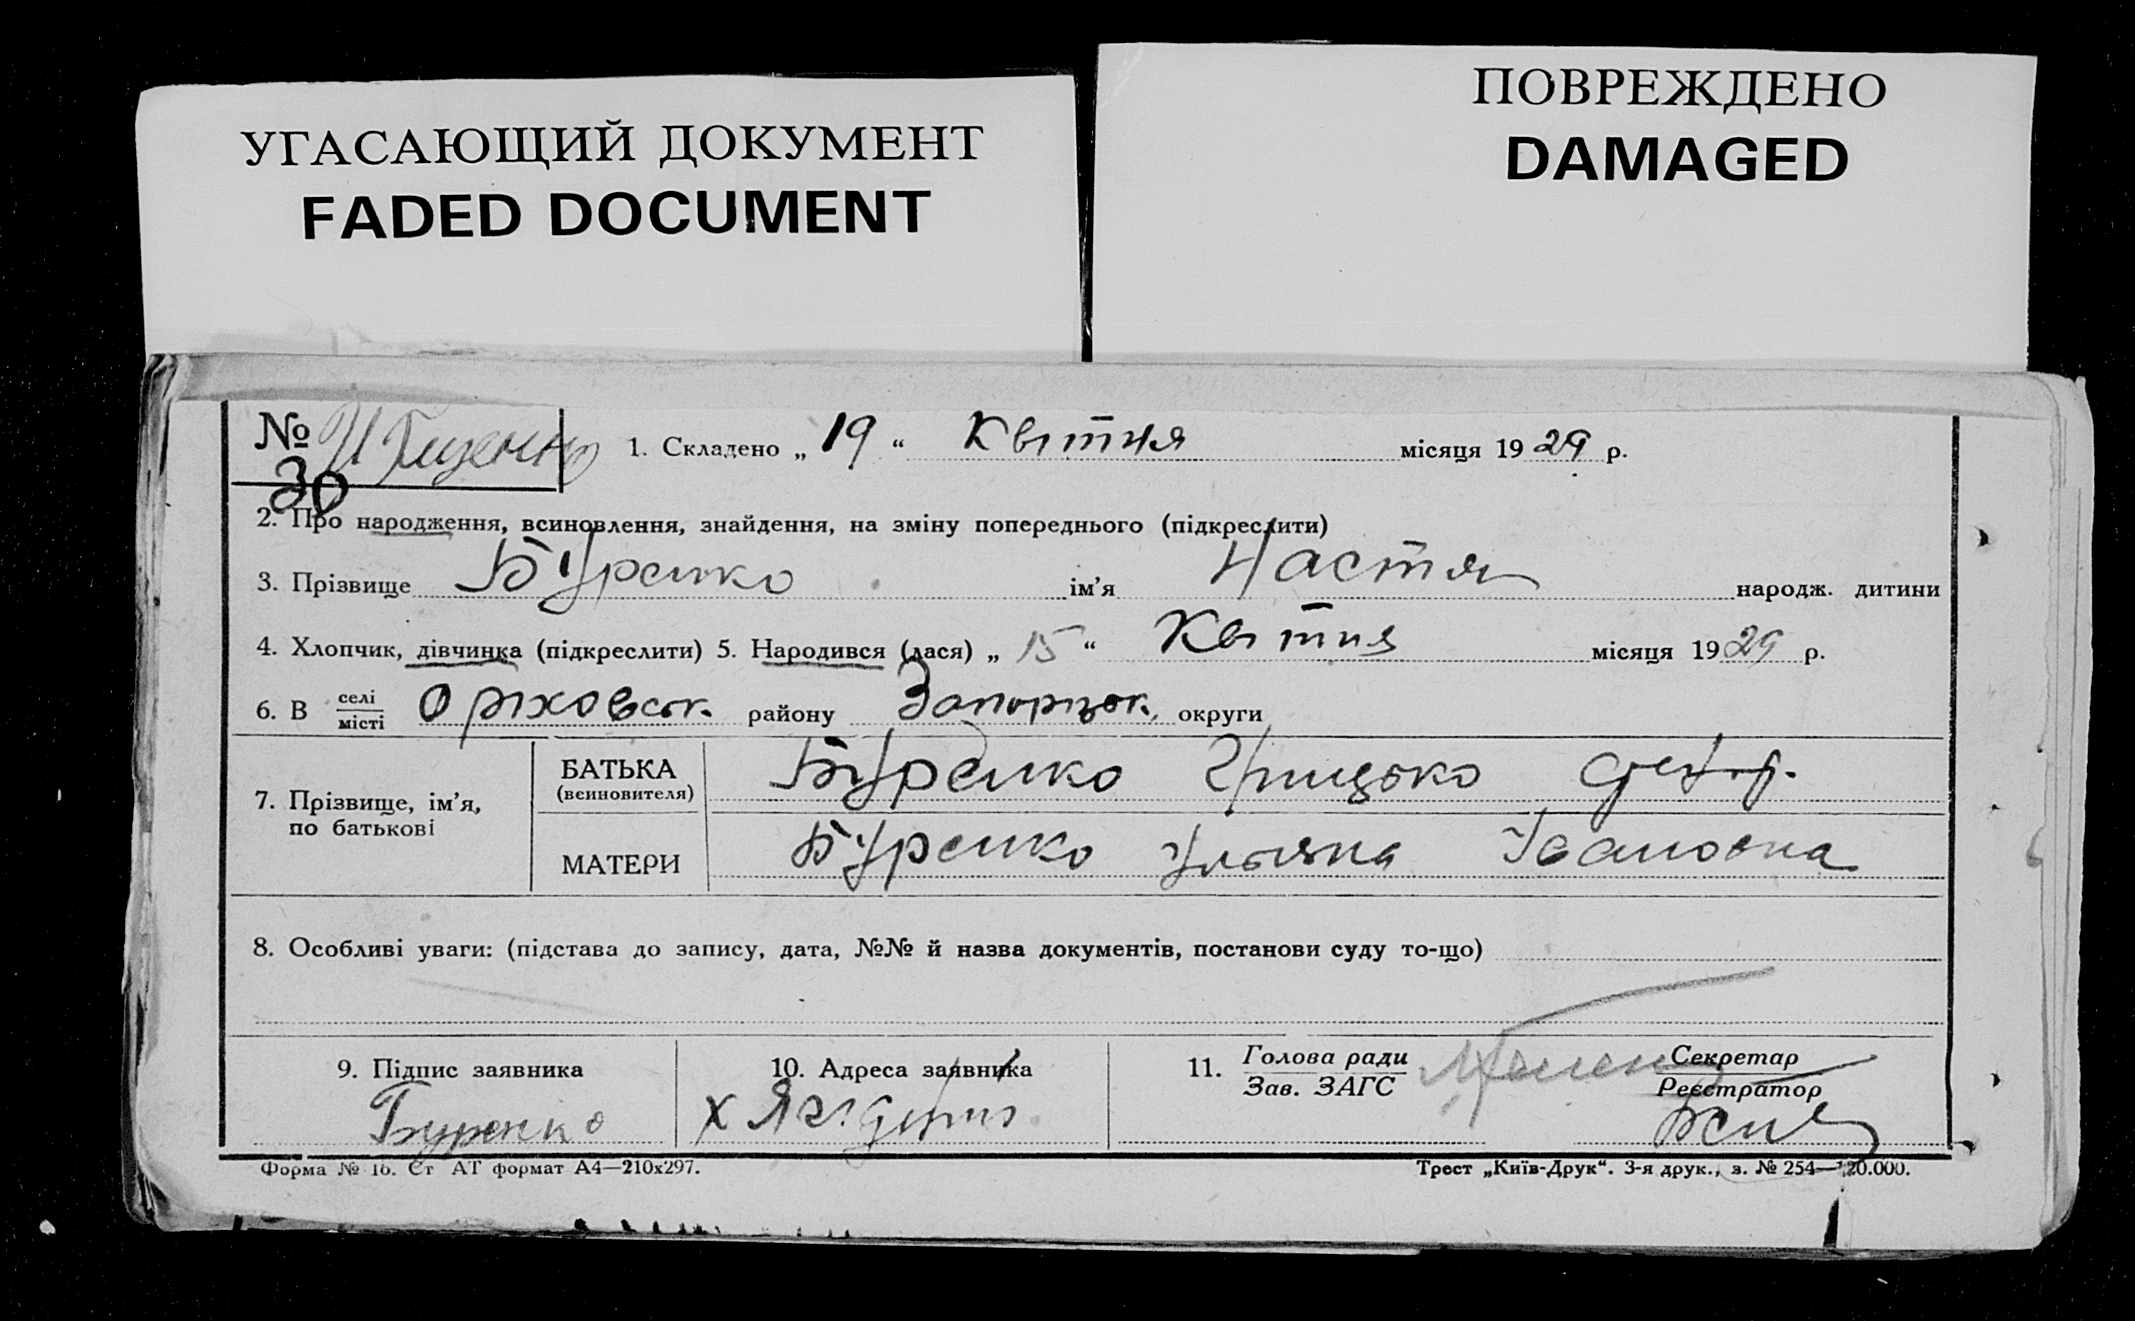 УГАСАЮЩИЙ ДОКУМЕНТ
FADED DOCUMENT
ПОВРЕЖДЕНО
DAMAGED
№ 30
1. Складено „ 19 “ Квітня місяця 1929 р.
2. Про народження, всиновлення, знайдення, на зміну попереднього (підкреслити)
3. Прізвище Буренко ім’я Настя народж. дитини
4. Хлопчик, дівчинка (підкреслити) 5. Народився (лася) „ 15 “ Квітня місяця 1929 р.
6. В селі місті Оріховськ. району Запорізьк. округи
7. Прізвище, ім’я, по батькові
БАТЬКА (всиновителя) Буренко Грицько
МАТЕРИ Буренко Ульяна Івановна
8. Особливі уваги: (підстава до запису, дата, №№ й назва документів, постанови суду то-що)
9. Підпис заявника
Буренко
10. Адреса заявника
11. Голова ради Зав. ЗАГС
Секретар Реєстратор
Форма № 16. Ст АТ формат А4—210х297.
Трест „Київ-Друк“. 3-я друк., з. № 254—120.000.